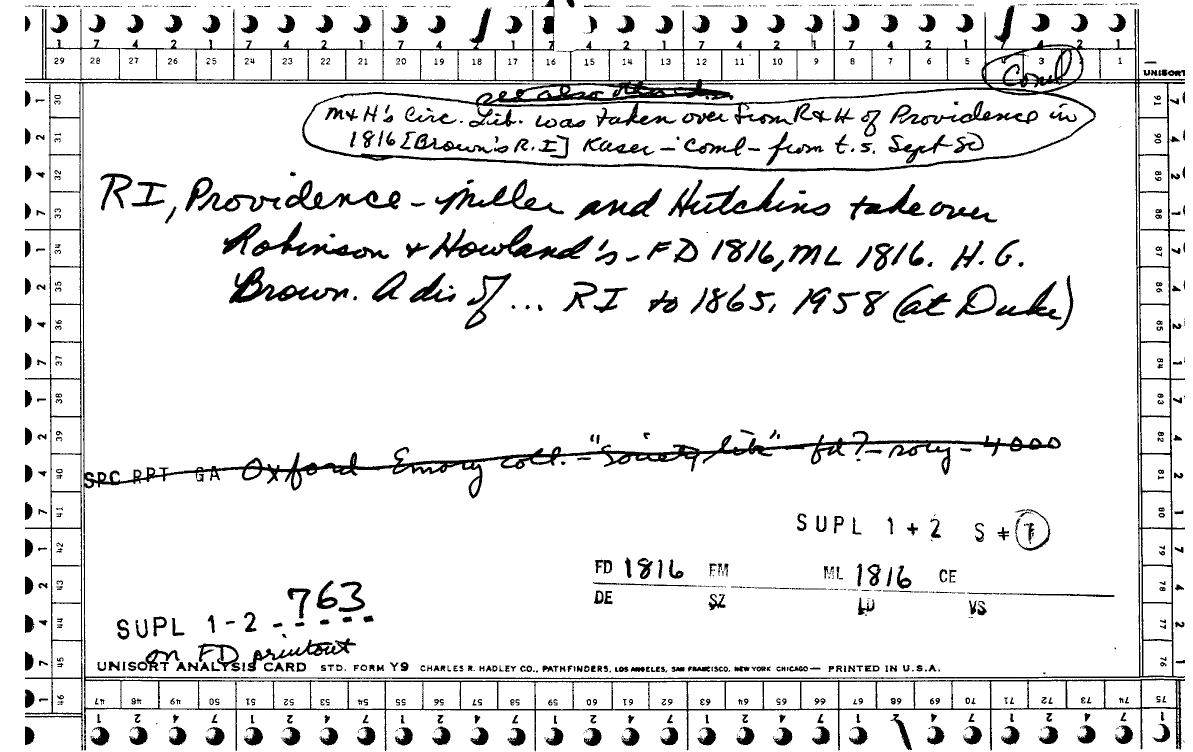 7 4 2 1 7 4 2 1 7 4 2 1 7 4 2 1 7 4 2 1 7 4 2 1
29 28 27 26 25 24 23 22 21 20 19 18 17 16 15 14 13 12 11 10 9 8 7 6 5 3 1
UNISORT
Coml
see also
M&H's Circ. Lib. was taken over from R&H of Providence in
1816 [Brown's R.I] Kaser - Coml - from t.s. Sept 80
RI, Providence - Miller and Hutchins take over
Robinson & Howland's - FD 1816, ML 1816. H.G.
Brown. A dis of ... RI to 1865. 1958 (at Duke)
SPC RPT GA Oxford Emory coll. - "Society lib" - fd? - 4000
SUPL 1 + 2 S + 7
FD 1816 FM ML 1816 CE
DE SZ LD VS
SUPL 1-2 763
on FD printout
UNISORT ANALYSIS CARD STD. FORM Y9 CHARLES R. HADLEY CO., PATHFINDERS, LOS ANGELES, SAN FRANCISCO, NEW YORK CHICAGO — PRINTED IN U.S.A.
30 31 32 33 34 35 36 37 38 39 40 41 42 43 44 45 46
47 48 49 50 51 52 53 54 55 56 57 58 59 60 61 62 63 64 65 66 67 68 69 70 71 72 73 74 75
91 90 89 88 87 86 85 84 83 82 81 80 79 78 77 76